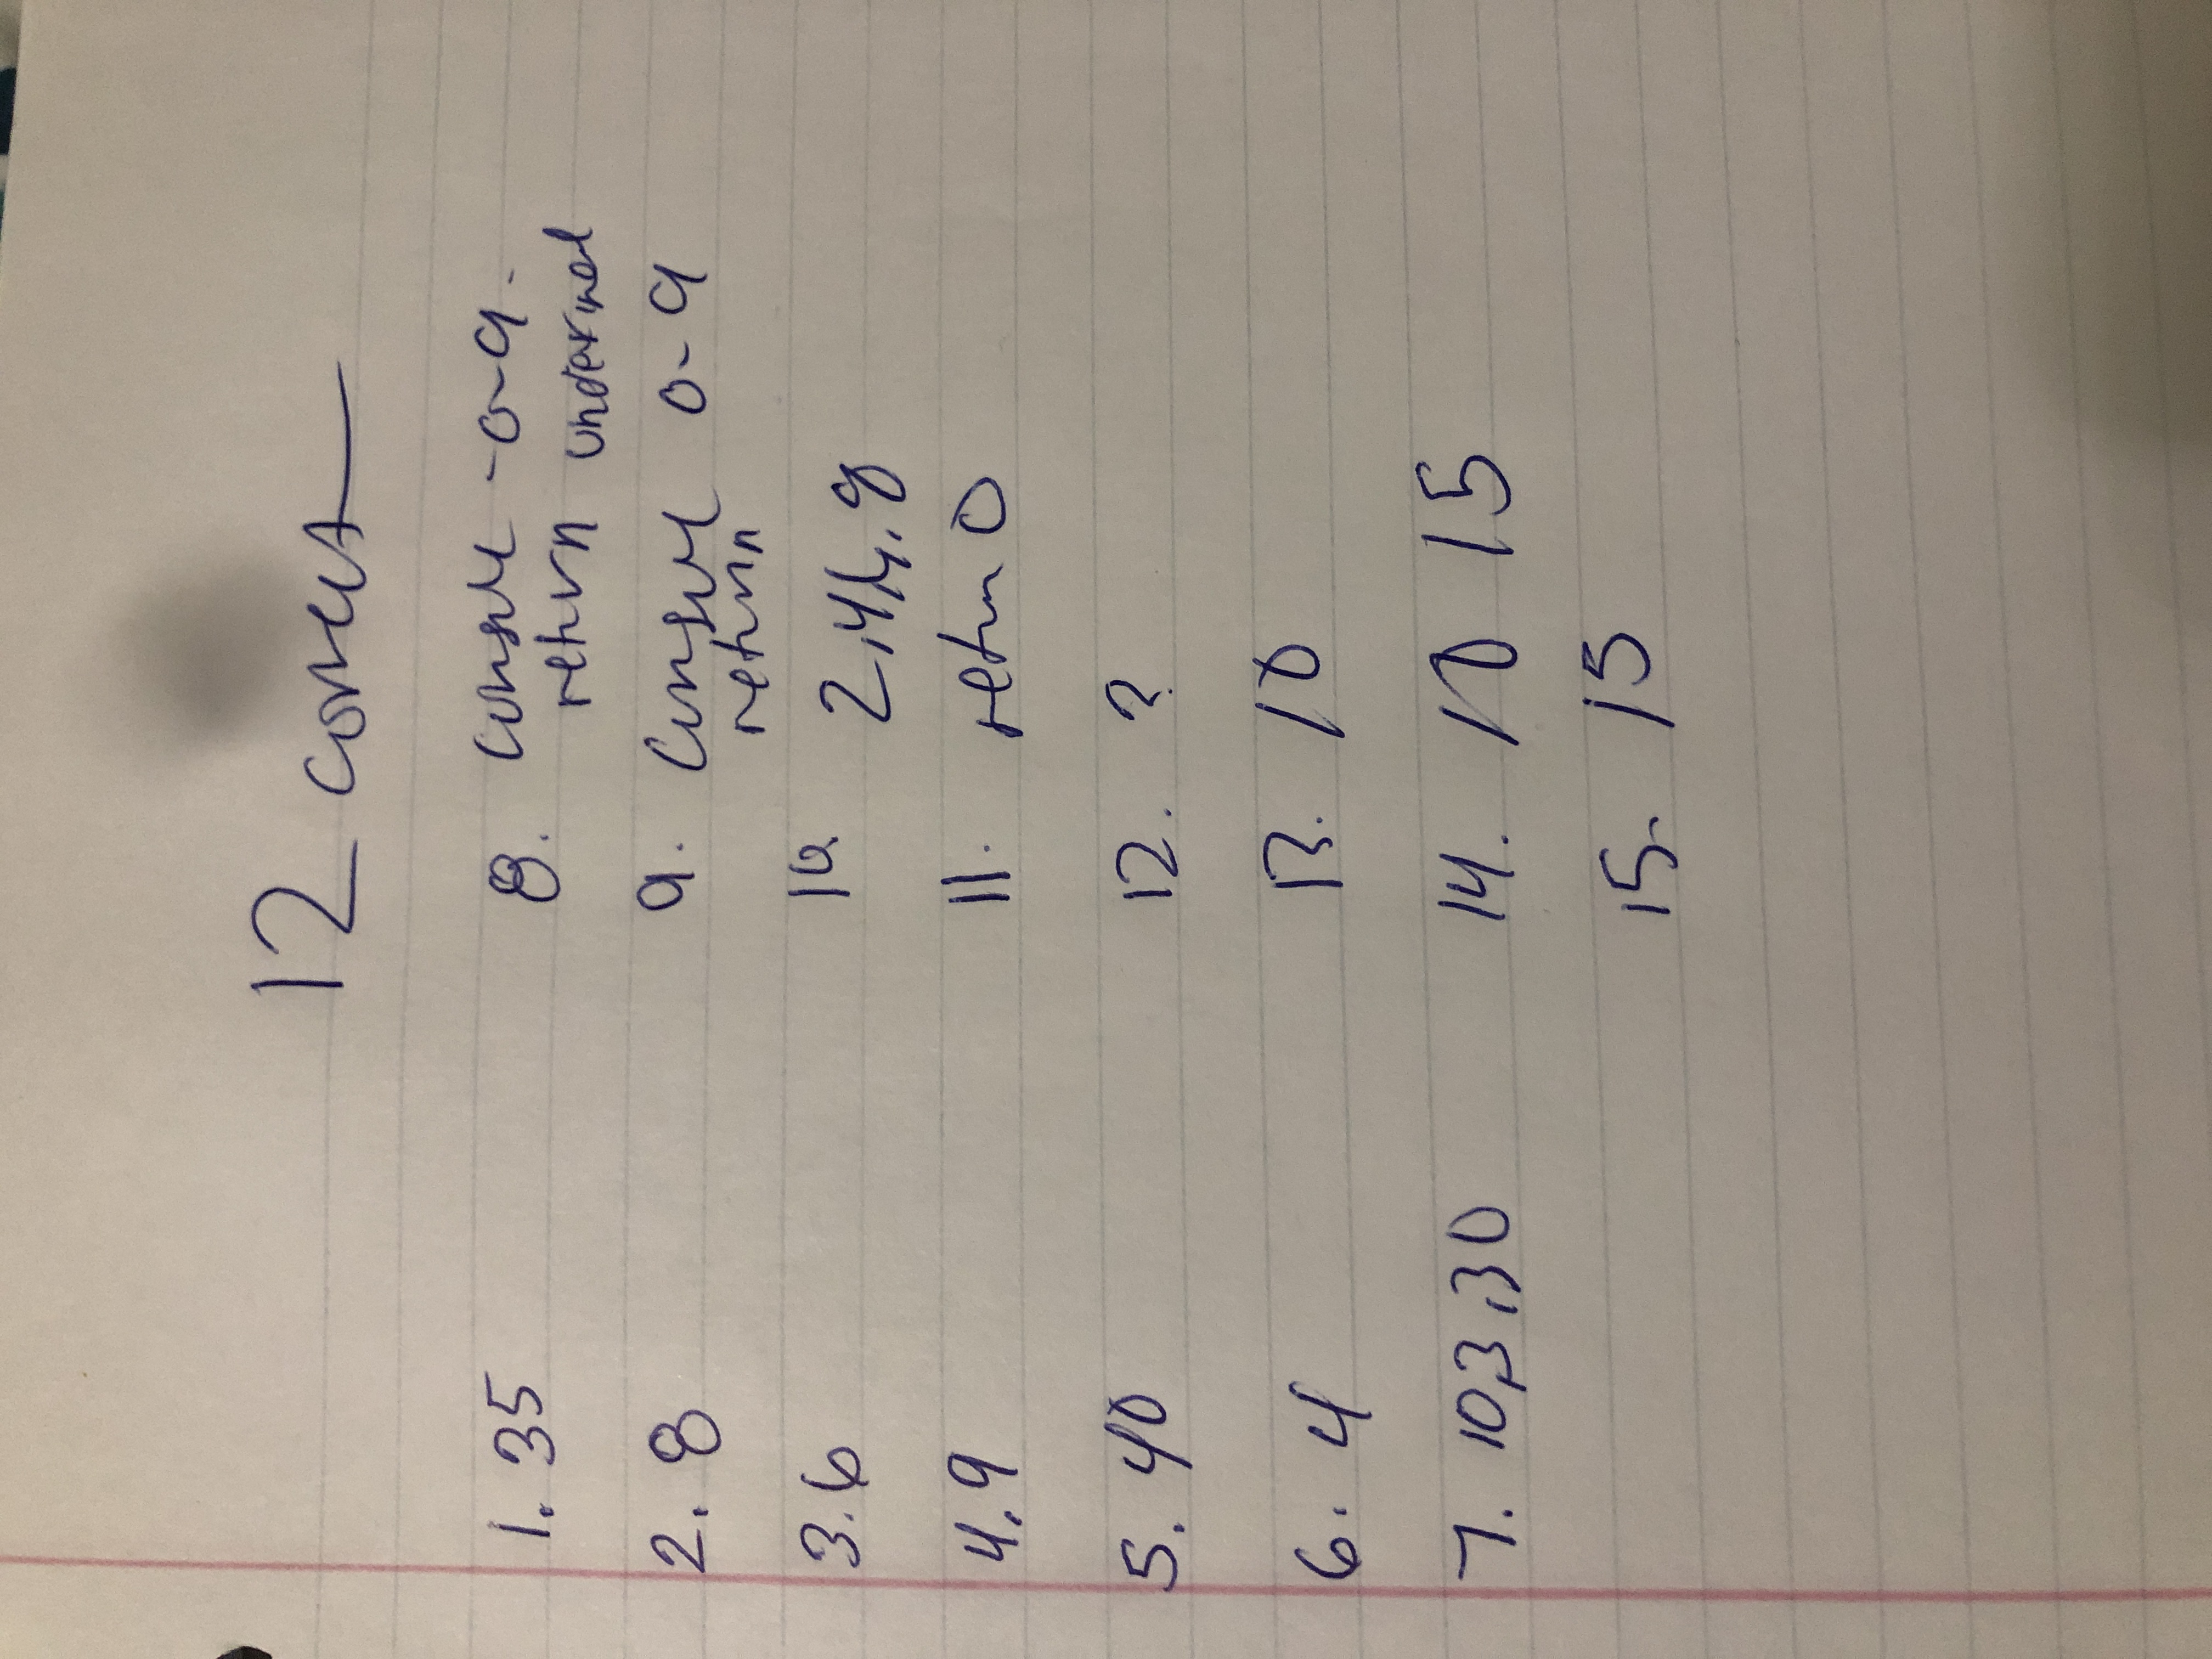 12 correct
1. 35
2. 8
3. 6
4. 9
5. 40
6. 4
7. 10,3,30
8. console - 0-9.
return undefined
9. console 0-9
return
10.
2,4,6,8
11. return 0
12. ?
13. 10
14. 10 15
15. 15